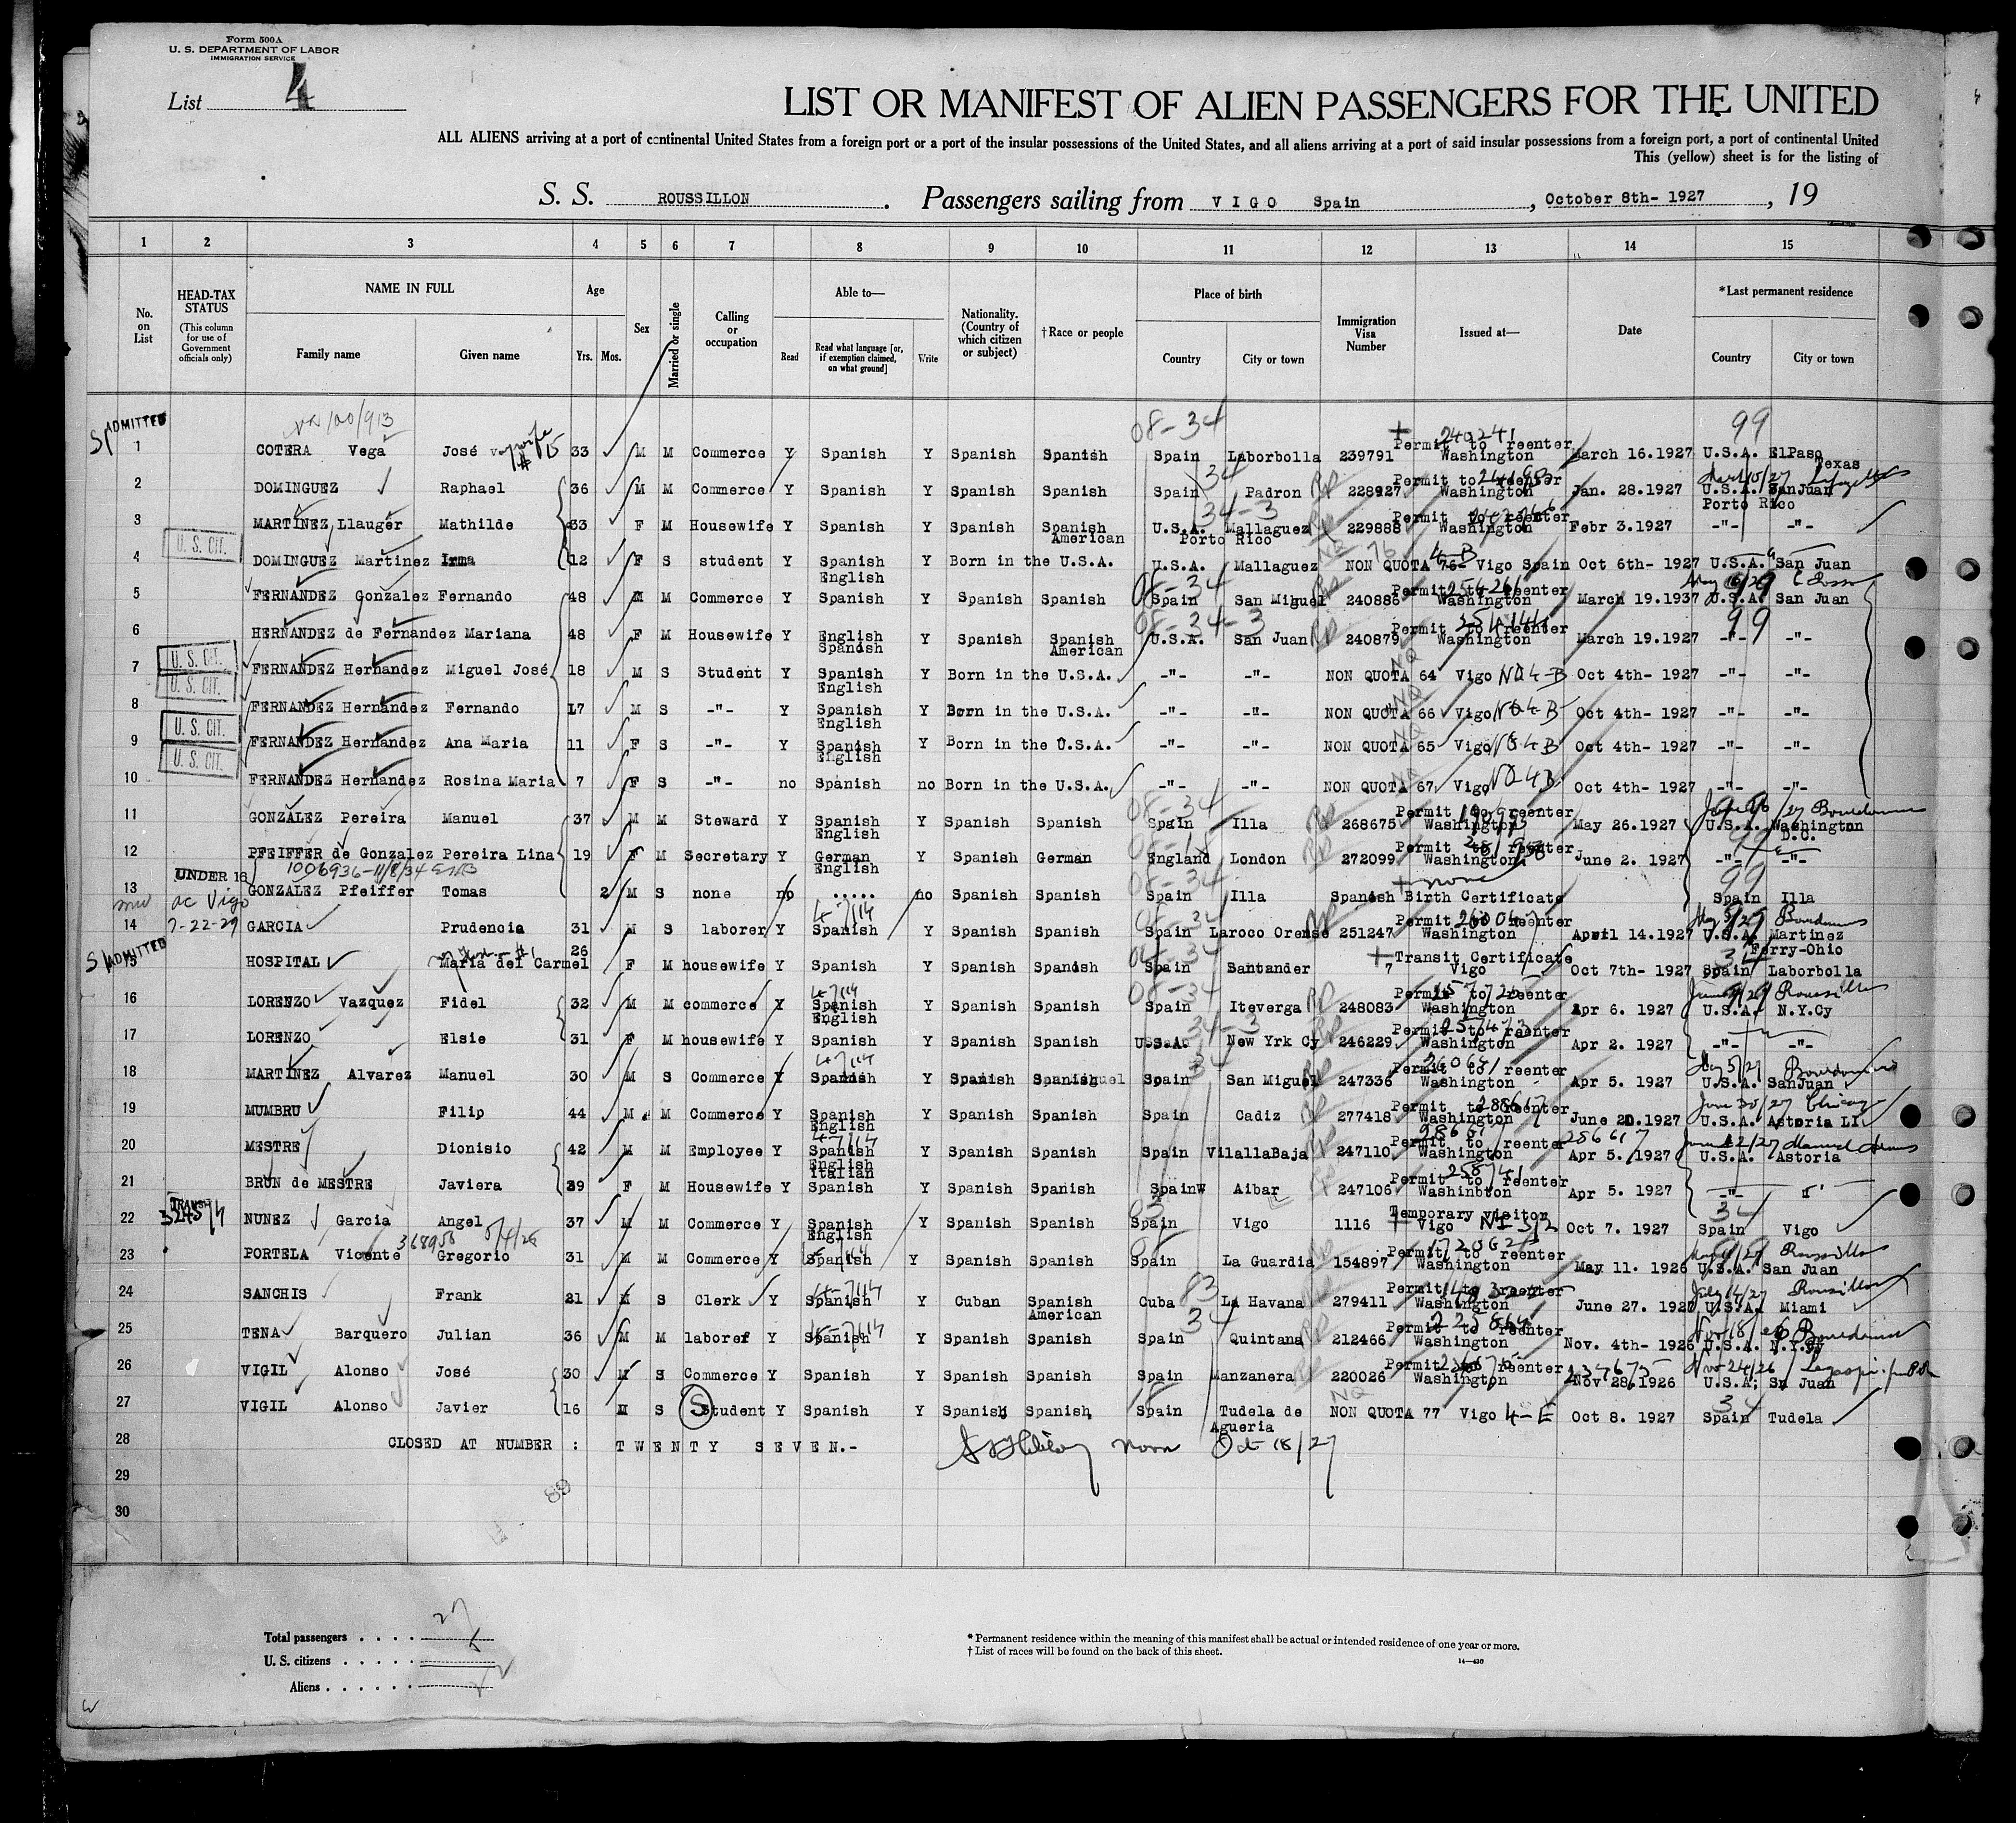 Form 500A
U. S. DEPARTMENT OF LABOR
IMMIGRATION SERVICE
List 4
LIST OR MANIFEST OF ALIEN PASSENGERS FOR THE UNITED
ALL ALIENS arriving at a port of continental United States from a foreign port or a port of the insular possessions of the United States, and all aliens arriving at a port of said insular possessions from a foreign port, a port of continental United
This (yellow) sheet is for the listing of
S. S. ROUSSILLON . Passengers sailing from VIGO Spain , October 8th- 1927 , 19
1 2 3 4 5 6 7 8 9 10 11 12 13 14 15
No. on List HEAD-TAX STATUS (This column for use of Government officials only) NAME IN FULL Family name Given name Age Yrs. Mos. Sex Married or single Calling or occupation Able to— Read Read what language [or, if exemption claimed, on what ground] Write Nationality. (Country of which citizen or subject) †Race or people Place of birth Country City or town Immigration Visa Number Issued at— Date *Last permanent residence Country City or town
ADMITTED 08-34 240241 99
1 COTERA Vega José wife # 15 33 M M Commerce Y Spanish Y Spanish Spanish Spain Laborbolla 239791 Permit to reenter Washington March 16.1927 U.S.A. ElPaso Texas
2 DOMINGUEZ Raphael 36 M M Commerce Y Spanish Y Spanish Spanish Spain Padron 228927 Permit to reenter Washington Jan. 28.1927 U.S.A. SanJuan Porto Rico
3 MARTINEZ Llauger Mathilde 33 F M Housewife Y Spanish Y Spanish Spanish American U.S.A. Mallaguez Porto Rico 229888 Permit to reenter Washington Febr 3.1927 -"- -"-
U. S. CIT.
4 DOMINGUEZ Martinez Irma 12 F S student Y Spanish English Y Born in the U.S.A. U.S.A. Mallaguez NON QUOTA 76- Vigo Spain 4-B Oct 6th- 1927 U.S.A. San Juan
5 FERNANDEZ Gonzalez Fernando 48 M M Commerce Y Spanish Y Spanish Spanish Spain San Miguel 240886 Permit to reenter Washington March 19.1937 U.S.A. San Juan
6 HERNANDEZ de Fernandez Mariana 48 F M Housewife Y English Spanish Y Spanish Spanish American U.S.A. San Juan 240879 Permit to reenter Washington March 19.1927 -"- -"-
U. S. CIT.
7 FERNANDEZ Hernandez Miguel José 18 M S Student Y Spanish English Y Born in the U.S.A. -"- -"- NON QUOTA 64 Vigo NQ 4-B Oct 4th- 1927 -"- -"-
U. S. CIT.
8 FERNANDEZ Hernandez Fernando 17 M S -"- Y Spanish English Y Born in the U.S.A. -"- -"- NON QUOTA 66 Vigo NQ 4-B Oct 4th- 1927 -"- -"-
U. S. CIT.
9 FERNANDEZ Hernandez Ana Maria 11 F S -"- Y Spanish English Y Born in the U.S.A. -"- -"- NON QUOTA 65 Vigo NQ 4 B Oct 4th- 1927 -"- -"-
U. S. CIT.
10 FERNANDEZ Hernandez Rosina Maria 7 F S -"- no Spanish no Born in the U.S.A. -"- -"- NON QUOTA 67 Vigo NQ 4B Oct 4th- 1927 -"- -"-
11 GONZALEZ Pereira Manuel 37 M M Steward Y Spanish English Y Spanish Spanish Spain Illa 268675 Permit to reenter Washington May 26.1927 U.S.A. Washington D.C.
12 PFEIFFER de Gonzalez Pereira Lina 19 F M Secretary Y German English Y Spanish German England London 272099 Permit to reenter Washington June 2. 1927 -"- -"-
UNDER 16 1006936-11/8/34
13 GONZALEZ Pfeiffer Tomas 2 M S none no ..... no Spanish Spanish Spain Illa Spanish Birth Certificate none Spain Illa
ac Vigo
14 7-22-29 GARCIA Prudencia 31 M S laborer Y Spanish Y Spanish Spanish Spain Laroco Orense 251247 Permit to reenter Washington April 14.1927 U.S.A. Martinez Ferry-Ohio
ADMITTED
15 HOSPITAL Maria del Carmel 26 F M housewife Y Spanish Y Spanish Spanish Spain Santander 7 Transit Certificate Vigo Oct 7th- 1927 Spain Laborbolla
16 LORENZO Vazquez Fidel 32 M M commerce Y Spanish English Y Spanish Spanish Spain Iteverga 248083 Permit to reenter Washington Apr 6. 1927 U.S.A. N.Y.Cy
17 LORENZO Elsie 31 F M housewife Y Spanish Y Spanish Spanish U.S.A. New Yrk Cy 246229 Permit to reenter Washington Apr 2. 1927 -"- -"-
18 MARTINEZ Alvarez Manuel 30 M S Commerce Y Spanish Y Spanish Spanish Spain San Miguel 247336 Permit to reenter Washington Apr 5. 1927 U.S.A. SanJuan
19 MUMBRU Filip 44 M M Commerce Y Spanish English Y Spanish Spanish Spain Cadiz 277418 Permit to reenter Washington June 20.1927 U.S.A. Astoria LI
20 MESTRE Dionisio 42 M M Employee Y Spanish English Italian Y Spanish Spanish Spain VilallaBaja 247110 Permit to reenter Washington Apr 5. 1927 U.S.A. Astoria
21 BRUN de MESTRE Javiera 39 F M Housewife Y Spanish Y Spanish Spanish Spain Aibar 247106 Permit to reenter Washinbton Apr 5. 1927 -"- "
22 NUNEZ Garcia Angel 37 M M Commerce Y Spanish English Y Spanish Spanish Spain Vigo 1116 Temporary visitor Vigo Oct 7. 1927 Spain Vigo
23 PORTELA Vicente Gregorio 31 M M Commerce Y Spanish Y Spanish Spanish Spain La Guardia 154897 Permit to reenter Washington May 11. 1926 U.S.A. San Juan
24 SANCHIS Frank 21 M S Clerk Y Spanish Y Cuban Spanish American Cuba La Havana 279411 Permit to reenter Washington June 27. 1927 U.S.A. Miami
25 TENA Barquero Julian 36 M M laborer Y Spanish Y Spanish Spanish Spain Quintana 212466 Permit to reenter Washington Nov. 4th- 1926 U.S.A. N.Y.Cy
26 VIGIL Alonso José 30 M S Commerce Y Spanish Y Spanish Spanish Spain Manzanera 220026 Permit to reenter Washington Nov 28,1926 U.S.A; Sn Juan
27 VIGIL Alonso Javier 16 M S Student Y Spanish Y Spanish Spanish Spain Tudela de Agueria NON QUOTA 77 Vigo 4-E Oct 8. 1927 Spain Tudela
28 CLOSED AT NUMBER : TWENTY SEVEN.- noon Oct 18/27
29
30
89
Total passengers . . . . 27
U. S. citizens . . . . .
Aliens . . . . . .
* Permanent residence within the meaning of this manifest shall be actual or intended residence of one year or more.
† List of races will be found on the back of this sheet.
14—430